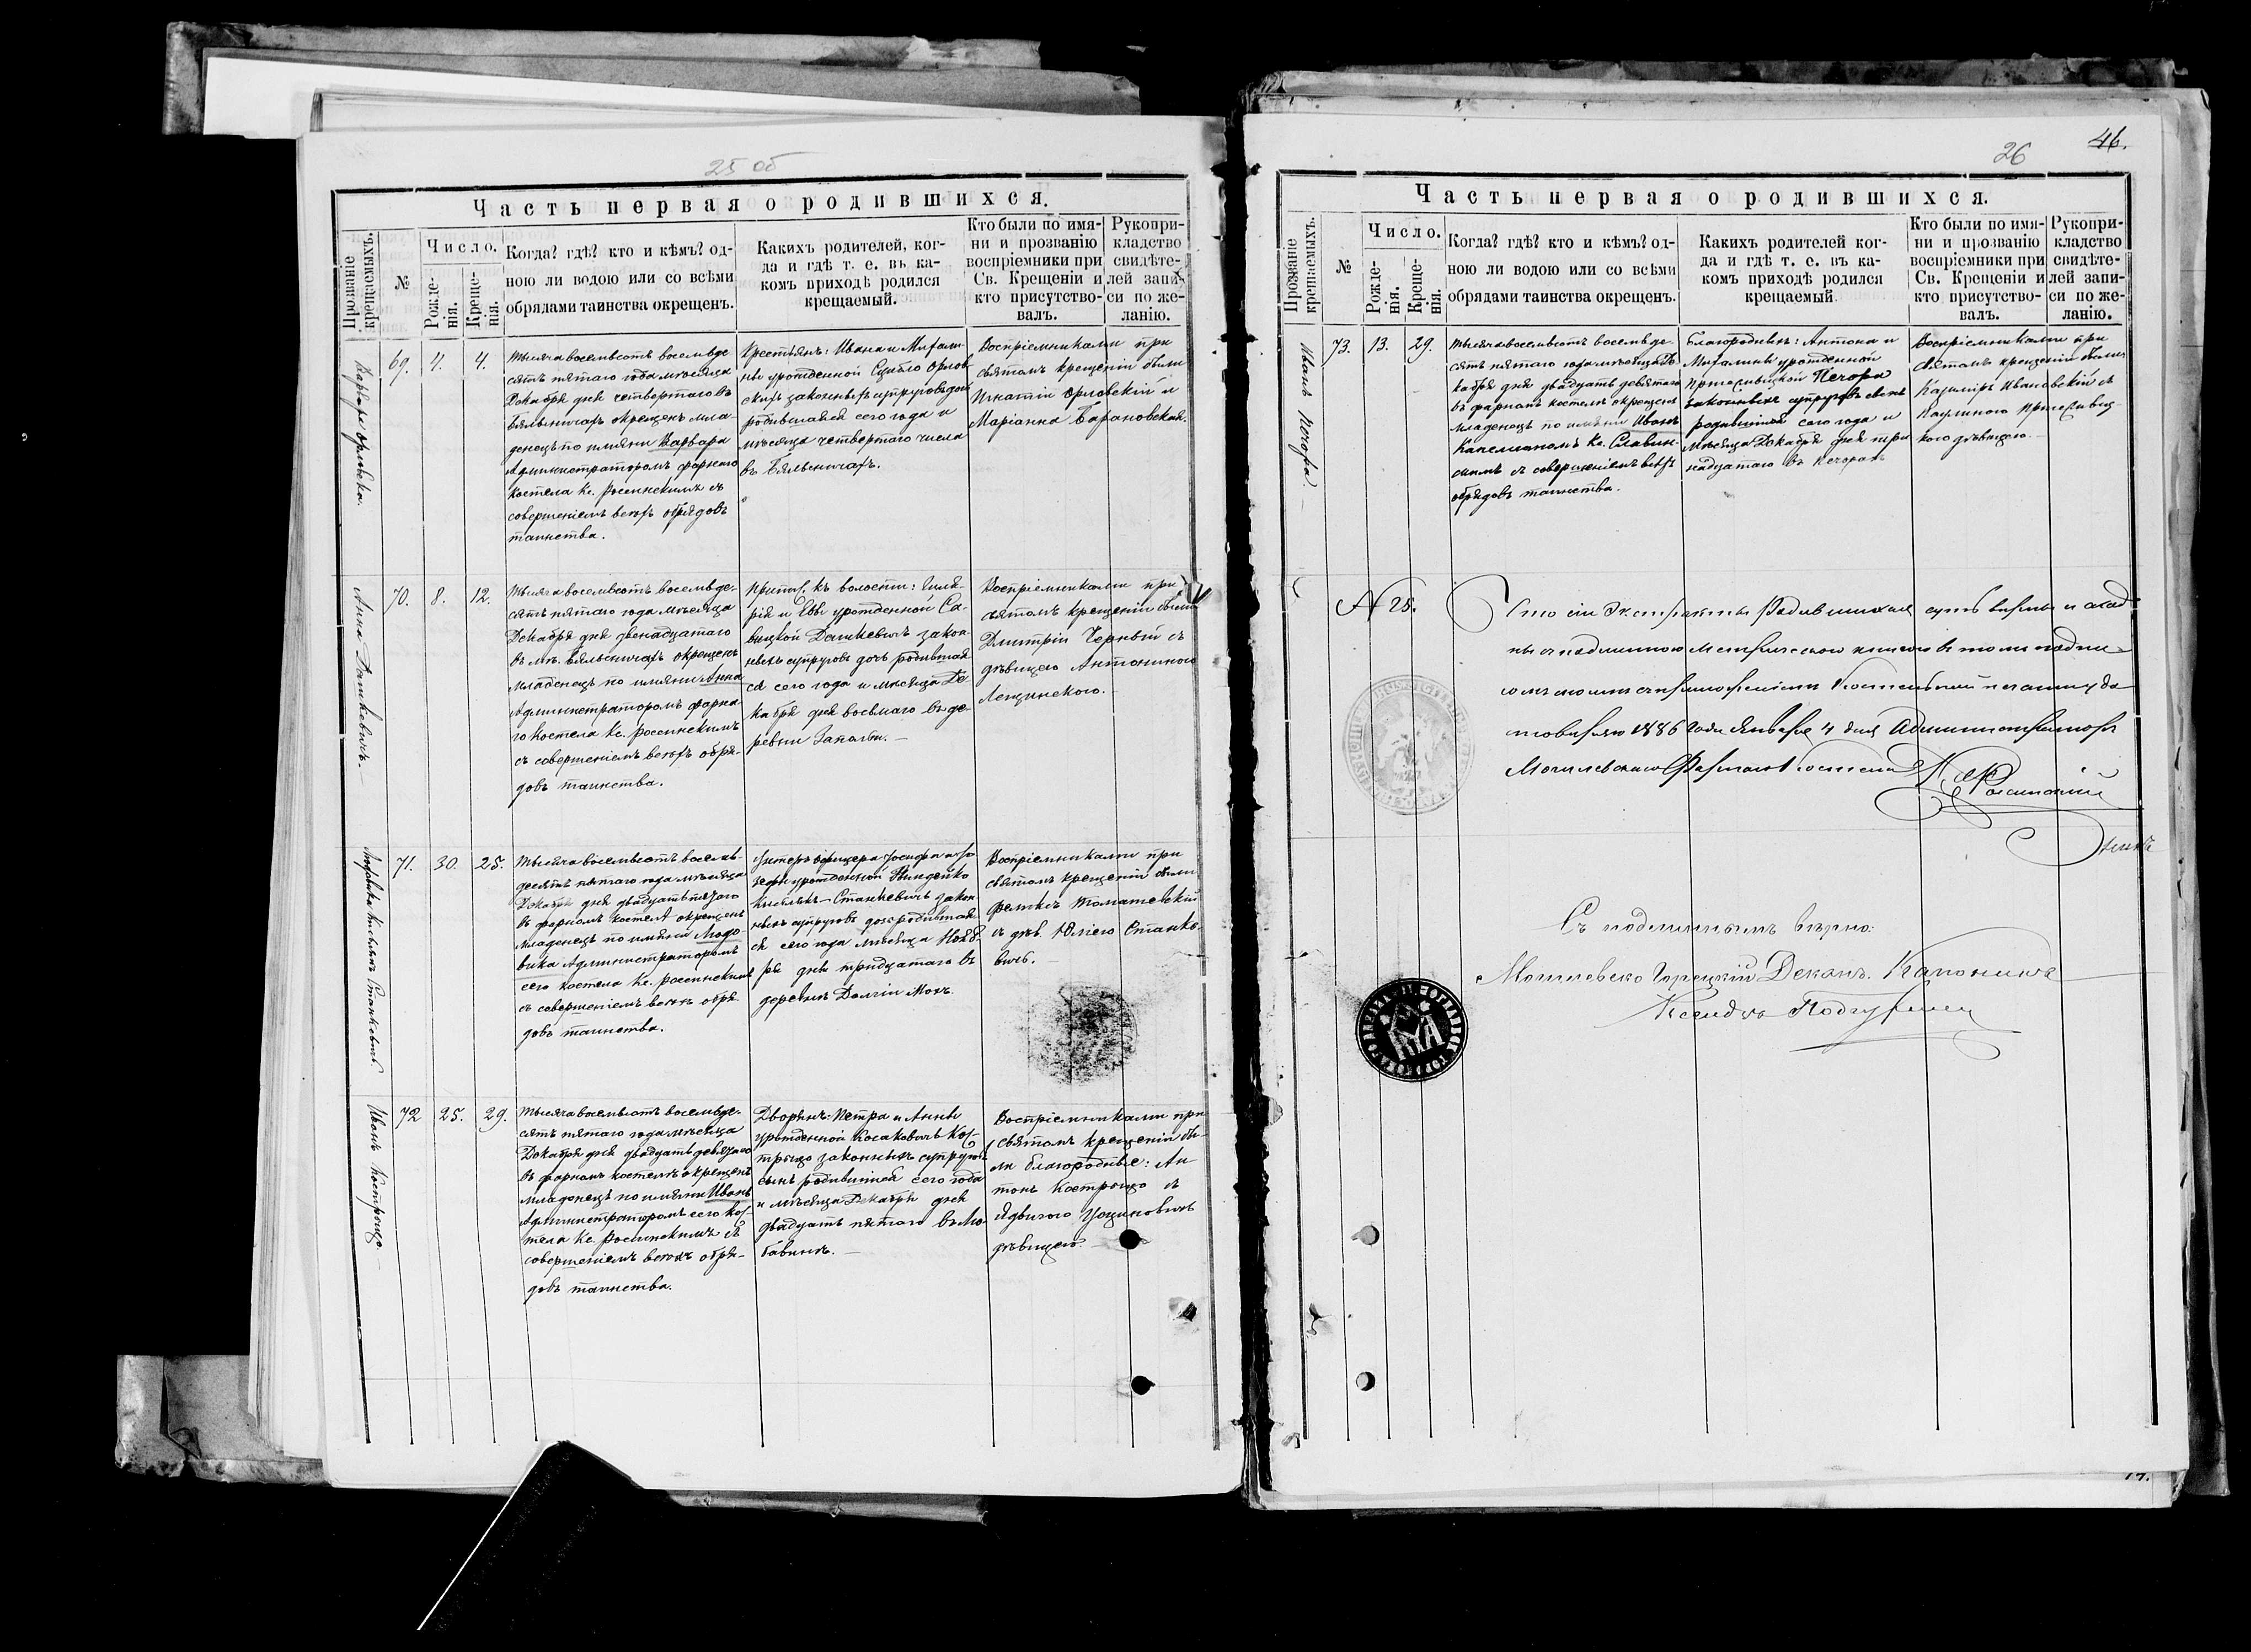 25 об
Часть первая о родившихся.
Прозваніе крещаемыхъ.
№
Число.
Рожде-
нія.
Креще-
нія.
Когда? гдѣ? кто и кѣмъ? од-
ною ли водою или со всѣми
обрядами таинства окрещенъ.
Какихъ родителей, ког-
да и гдѣ т. е. въ ка-
комъ приходѣ родился
крещаемый.
Кто были по имя-
ни и прозванію
воспріемники при
Св. Крещеніи и
кто присутство-
валъ.
Рукопри-
кладство
свидѣте-
лей запи-
си по же-
ланію.
69. 4. 4.
Тысяча восемьсотъ восемьде-
сятъ пятаго года мѣсяца
Декабря дня четвертаго въ
Бялыничахъ окрещенъ мла-
денецъ по имяни Варвара
Администраторомъ фарнаго
костела Кс. Росинскимъ съ
совершеніемъ всѣхъ обрядовъ
таинства.
Крестьянъ: Ивана и
родившаяся сего года и
мѣсяца четвертаго числа
въ Бялыничахъ.
Воспріемниками при
святомъ крещеніи были
Игнатій Орловскій и
Маріанна Барановская.
Анна Дашкевичъ.
70. 8. 12.
Тысяча восемьсотъ восемьде-
сятъ пятаго года мѣсяца
Декабря дня двенадцатаго
въ м. Бялыничахъ окрещенъ
младенецъ по имяни Анна
Администраторомъ фарна-
го костела Кс. Росинскимъ
съ совершеніемъ всѣхъ обря-
довъ таинства.
къ волости:
и Еввы урожденной Са-
вицкой Дашкевичъ закон-
ныхъ супруговъ дочь родившая-
ся сего года и мѣсяца Де-
кабря дня восьмаго въ де-
ревни
Воспріемниками при
святомъ крещеніи были
Дмитрій Черный съ
дѣвицею Антониною
Лещинскою.
71. 30. 25.
Тысяча восемьсотъ восемь-
десятъ пятаго года мѣсяца
Декабря дня двадцать пятаго
въ фарномъ костелѣ окрещенъ
младенецъ по имяни Людо-
вика Администраторомъ
сего костела Кс. Росинскимъ
съ совершеніемъ всѣхъ обря-
довъ таинства.
Унтеръ офицера Іосифа и Іо-
зефы урожденной
Станкевичъ закон-
ныхъ супруговъ дочь родившая-
ся сего года мѣсяца Нояб-
ря дня тридцатаго въ
деревнѣ Долгій Мохъ.
Воспріемниками при
святомъ крещеніи были
Феликсъ Томашевскій
съ дѣв. Юліею Станке-
вичъ.
Иванъ Костроцо
72 25. 29.
Тысяча восемьсотъ восемьде-
сятъ пятаго года мѣсяца
Декабря дня двадцать девятаго
въ фарномъ костелѣ окрещенъ
младенецъ по имяни Иванъ
Администраторомъ сего кос-
тела Кс. Росинскимъ съ
совершеніемъ всѣхъ обря-
довъ таинства.
Дворянъ: Петра и Анны
урожденной Косаковичъ
законныхъ супруговъ
сынъ родившійся сего года
и мѣсяца Декабря дня
двадцать пятаго въ
Воспріемниками при
святомъ крещеніи бы-
ли благородные: Ан-
тонъ съ
Ядвигою
дѣвицею.
26
46.
Часть первая о родившихся.
Прозваніе крещаемыхъ.
№
Число.
Рожде-
нія.
Креще-
нія.
Когда? гдѣ? кто и кѣмъ? од-
ною ли водою или со всѣми
обрядами таинства окрещенъ.
Какихъ родителей ког-
да и гдѣ т. е. въ ка-
комъ приходѣ родился
крещаемый.
Кто были по имя-
ни и прозванію
воспріемники при
Св. Крещеніи и
кто присутство-
валъ.
Рукопри-
кладство
свидѣте-
лей запи-
си по же-
ланію.
Иванъ Печора.
73. 13. 29.
Тысяча восемьсотъ восемьде-
сятъ пятаго года мѣсяца Де-
кабря дня двадцать девятаго
въ фарномъ костелѣ окрещенъ
младенецъ по имяни Иванъ
Капеланомъ Кс. Славин-
скимъ съ совершеніемъ всѣхъ
обрядовъ таинства.
Благородныхъ: Антона и
урожденной
Печора
законныхъ супруговъ сынъ
родившійся сего года и
мѣсяца Декабря дня три-
надцатаго въ Печорахъ
Воспріемниками при
святомъ крещеніи были
Казиміръ Ивановскій съ
Паулиною
дѣвицею.
№ 25.
Что сіи Экстракты родившихся суть вѣрны и сход-
ны съ подлинною метрическою книгою въ томъ подпи-
сомъ моимъ съ приложеніемъ костельной печати удо-
стовѣряю 1886 года Января 4 дня Администраторъ
Могилевскаго Фарнаго Костела Кс. Росинскій
Съ подлиннымъ вѣрно:
Могилевско Горецкій Деканъ. Каноникъ
Ксендзъ